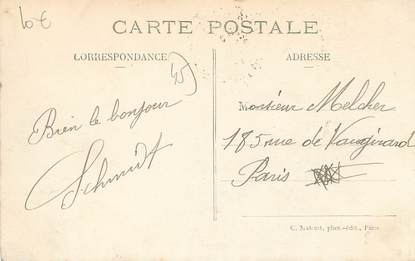 10€
CARTE POSTALE
CORRESPONDANCE
ADRESSE
45
Bien le bonjour
Schmidt
Monsieur Melcher
185 rue de Vaugirard
Paris
phot.-édit., Paris